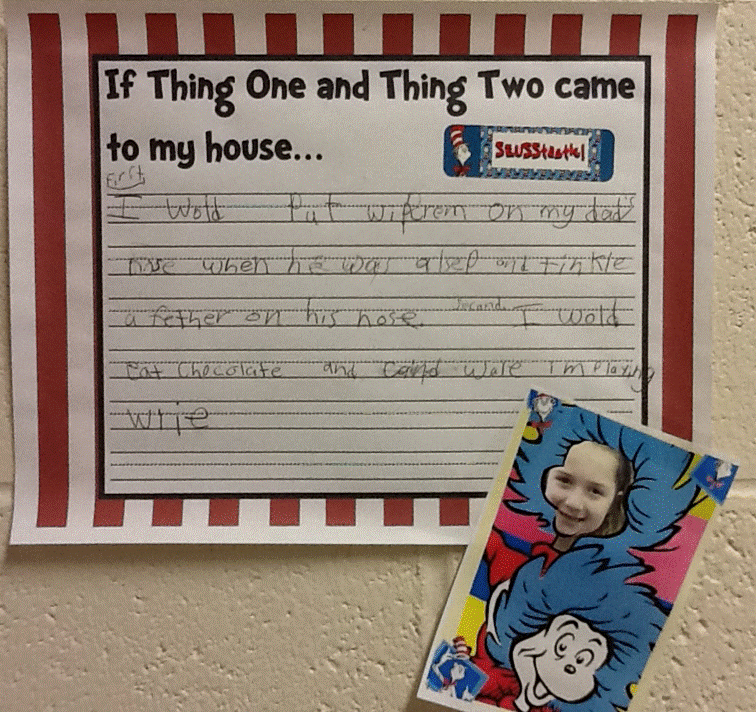 If Thing One and Thing Two came
to my house...
SEUSStastic!
First
I wold Put wipcrem on my dad's
nose when he was alsep and tinkle
a fether on his nose. Second I wold
Eat Chocolate and Cand wale I'm playing
wrie